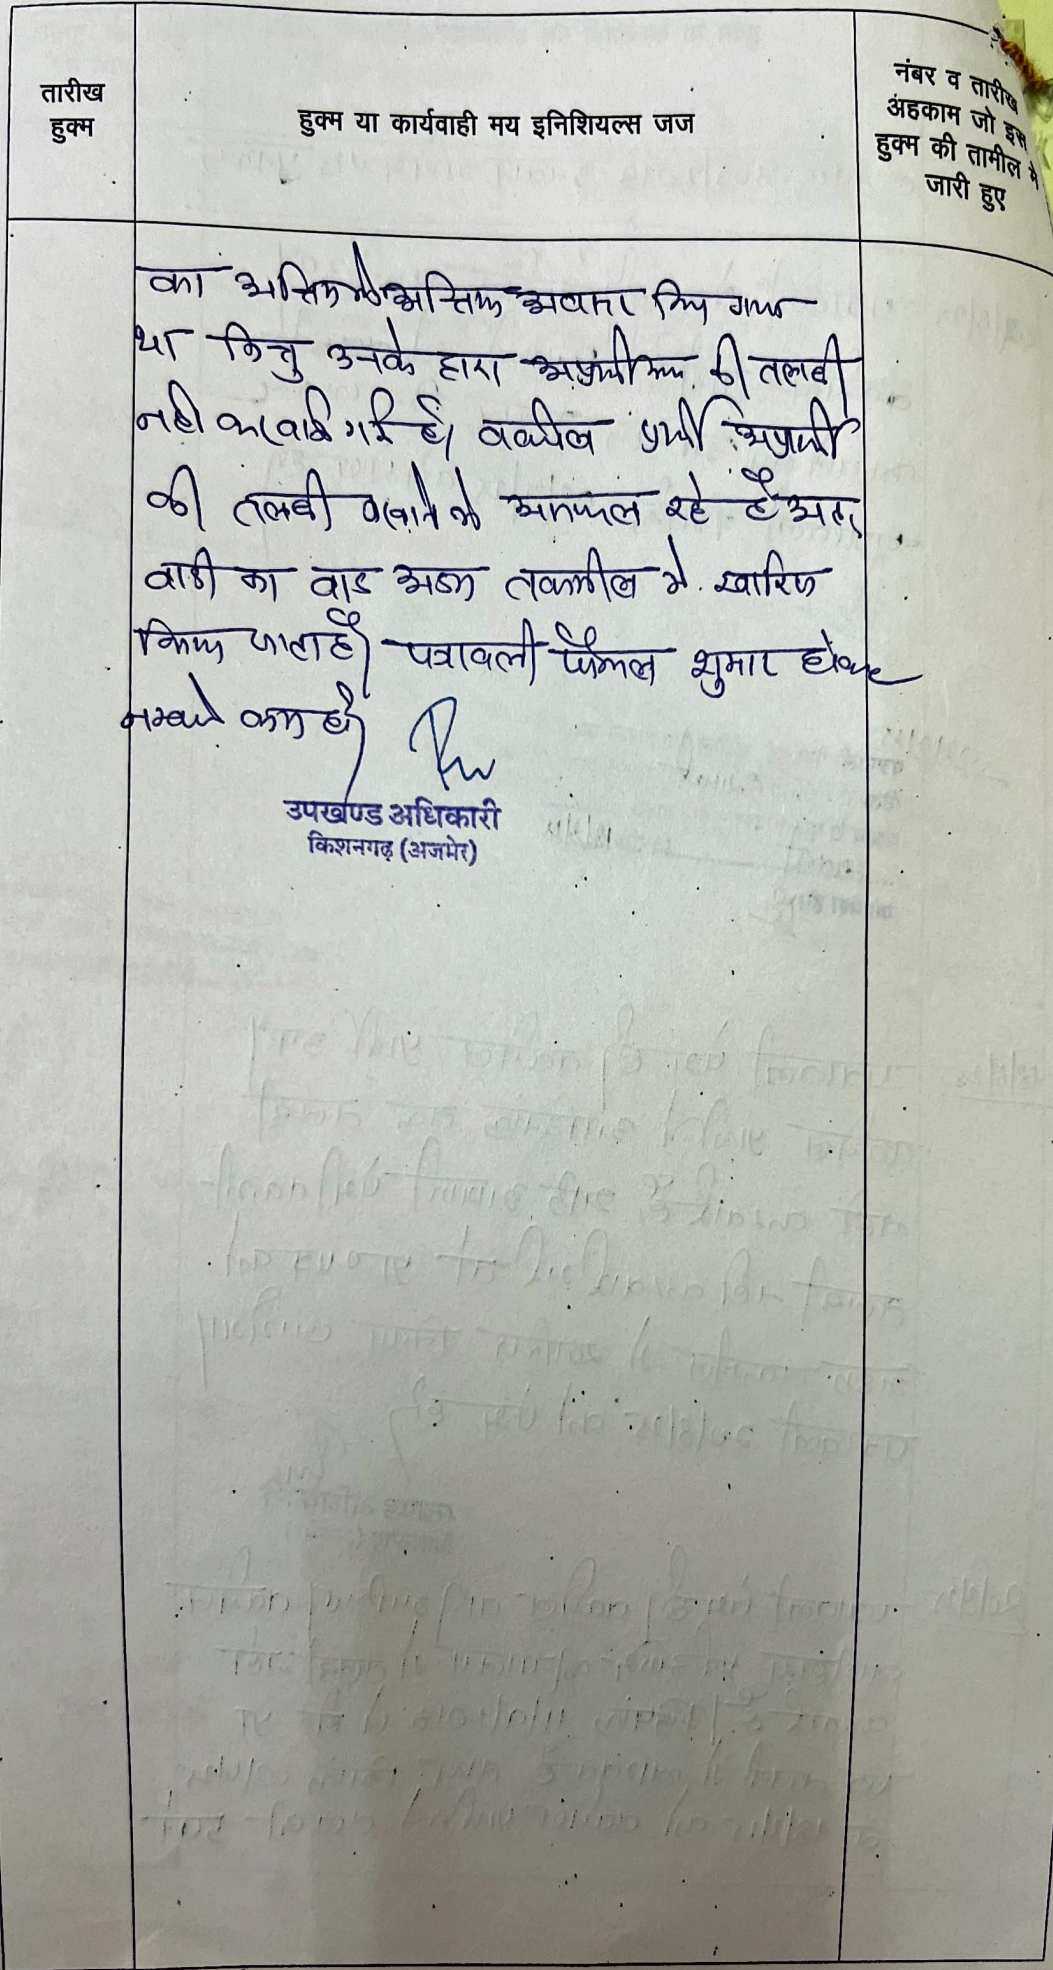 तारीख
हुक्म
हुक्म या कार्यवाही मय इनिशियल्स जज
नंबर व तारीख
अहकाम जो इस
हुक्म की तामील में
जारी हुए
का अन्तिम से अन्तिम अवसर दिया गया
था किन्तु उनके द्वारा अप्रार्थीगण की तलबी
नही करवाई गई है। वकील प्रार्थी अप्रार्थी
की तलबी करवाने मे असफल रहे है अतः
वादी का वाद अदम तकमील मे खारिज
किया जाता है। पत्रावली फैसल शुमार होकर
नम्बर से कम हो।
उपखण्ड अधिकारी
किशनगढ़ (अजमेर)